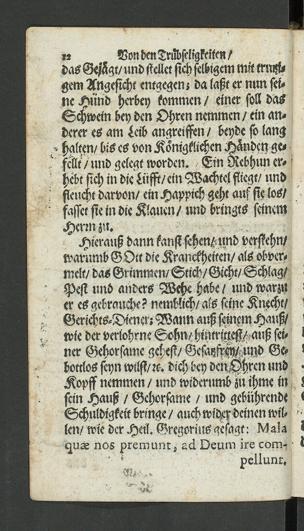 12 Von den Trübseligkeiten /
das Gejägt / und stellet sich selbigem mit trutzi-
gem Angesicht entgegen; da laßt er nun sei-
ne Hünd herbey kommen / einer soll das
Schwein bey den Ohren nemmen / ein an-
derer es am Leib angreiffen / beyde so lang
halten / bis es von Königlichen Händen ge-
fellt / und gelegt worden. Ein Rebhun er-
hebt sich in die Lüfft / ein Wachtel fliegt / und
fleucht darvon / ein Happich geht auf sie los /
fasset sie in die Klauen / und bringts seinem
Herrn zu.
Hierauß dann kanst sehen / und verstehn /
warumb GOtt die Kranckheiten / als obver-
melt / das Grimmen / Stich / Gicht / Schlag /
Pest und anders Wehe habe / und warzu
er es gebrauche? nemblich / als seine Knecht /
Gerichts-Diener; Wann auß seinem Hauß /
wie der verlohrne Sohn / hintrittest / auß sei-
ner Gehorsame gehest / Gesatzfrey / und Ge-
bottlos seyn wilst / ꝛc. dich bey den Ohren und
Kopff nemmen / und widerumb zu ihme in
sein Hauß / Gehorsame / und gebührende
Schuldigkeit bringe / auch wider deinen wil-
len / wie der Heil. Gregorius gesagt: Mala
quæ nos premunt, ad Deum ire com-
pellunt.